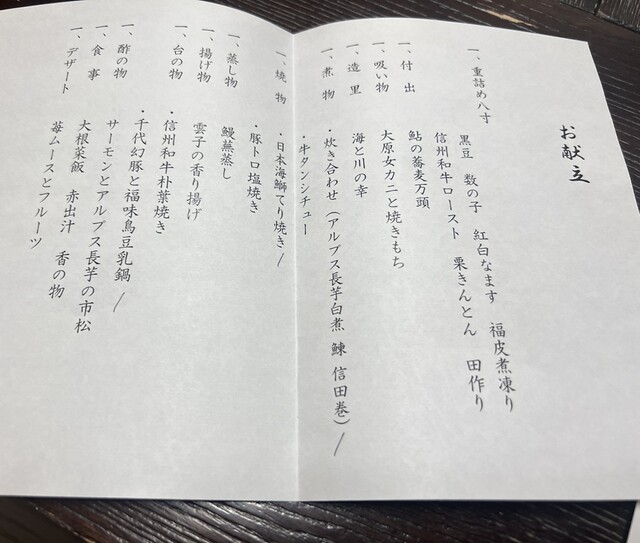 お献立
一、重詰め八寸
黒豆　数の子　紅白なます　福皮煮凍り
信州和牛ロースト　栗きんとん　田作り
一、付　出
鮎の蕎麦万頭
一、吸い物
大原女カニと焼きもち
一、造　里
海と川の幸
一、煮　物
・炊き合わせ（アルプス長芋白煮　鰊　信田巻）／
・牛タンシチュー
一、焼　物
・日本海鰤てり焼き／
・豚トロ塩焼き
一、蒸し物
鰻蕪蒸し
一、揚げ物
雲子の香り揚げ
一、台の物
・信州和牛朴葉焼き
・千代幻豚と福味鳥豆乳鍋／
一、酢の物
サーモンとアルプス長芋の市松
一、食　事
大根菜飯　赤出汁　香の物
一、デザート
苺ムースとフルーツ